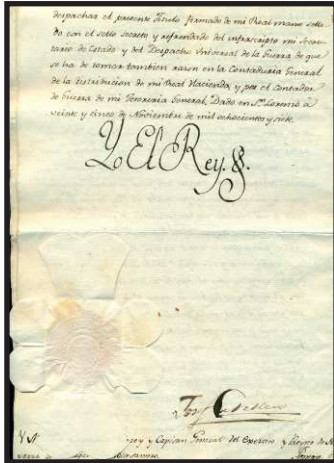 despachar el presente Titulo firmado de mi Real mano, sella
do con el sello secreto y refrendado del infrascripto mi Secre
tario de Estado y del Despacho Universal de la Guerra de que
se ha de tomar tambien razon en la Contaduria General
de la distribucion de mi Real Hacienda, y por el Contador
de Guerra de mi Thesoreria General. Dado en Sn. Lorenzo à
veinte y cinco de Noviembre de mil ochocientos y siete.
Yo El Rey.
y Capitan General del Exercito y Reyno de